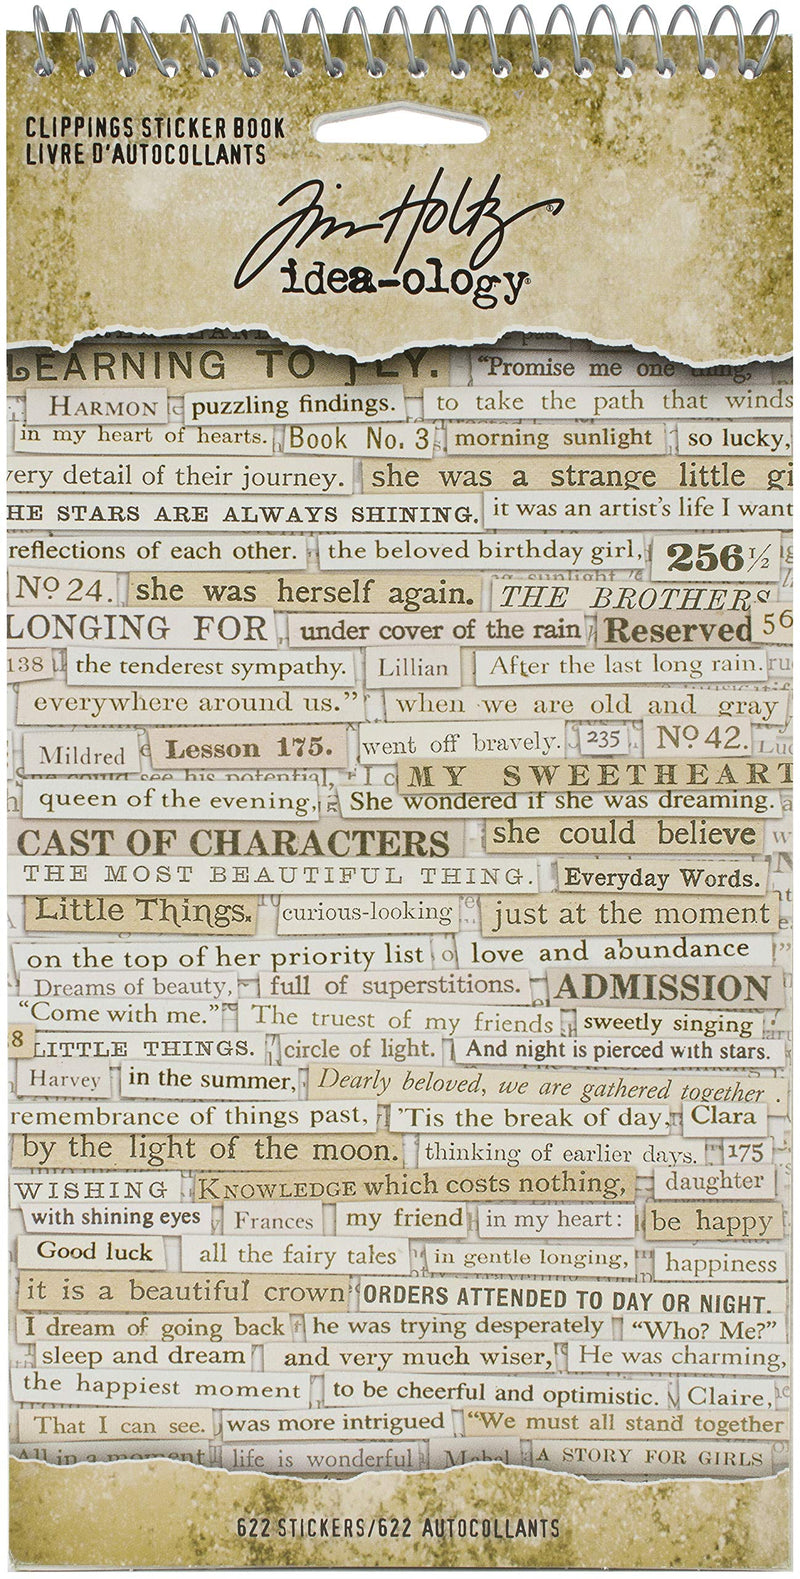 CLIPPINGS STICKER BOOK
LIVRE D'AUTOCOLLANTS
Tim Holtz®
idea-ology®
LEARNING TO FLY. "Promise me one thing,
HARMON puzzling findings. to take the path that winds
in my heart of hearts. Book No. 3 morning sunlight so lucky,
ery detail of their journey. she was a strange little gi
HE STARS ARE ALWAYS SHINING. it was an artist's life I want
reflections of each other. the beloved birthday girl, 256 1/2
No 24. she was herself again. THE BROTHERS
LONGING FOR under cover of the rain Reserved 56
138 the tenderest sympathy. Lillian After the last long rain.
everywhere around us." when we are old and gray
Mildred Lesson 175. went off bravely. 235 No 42.
She could see his potential, MY SWEETHEART
queen of the evening, She wondered if she was dreaming.
CAST OF CHARACTERS she could believe
THE MOST BEAUTIFUL THING. Everyday Words.
Little Things. curious-looking just at the moment
on the top of her priority list love and abundance
Dreams of beauty, full of superstitions. ADMISSION
"Come with me." The truest of my friends sweetly singing
8 LITTLE THINGS. circle of light. And night is pierced with stars.
Harvey in the summer, Dearly beloved, we are gathered together .
remembrance of things past, 'Tis the break of day, Clara
by the light of the moon. thinking of earlier days. 175
WISHING KNOWLEDGE which costs nothing, daughter
with shining eyes Frances my friend in my heart: be happy
Good luck all the fairy tales in gentle longing, happiness
it is a beautiful crown ORDERS ATTENDED TO DAY OR NIGHT.
I dream of going back he was trying desperately "Who? Me?"
sleep and dream and very much wiser, He was charming,
the happiest moment to be cheerful and optimistic. Claire,
That I can see. was more intrigued "We must all stand together
All in a moment life is wonderful Mabel A STORY FOR GIRLS
622 STICKERS/622 AUTOCOLLANTS